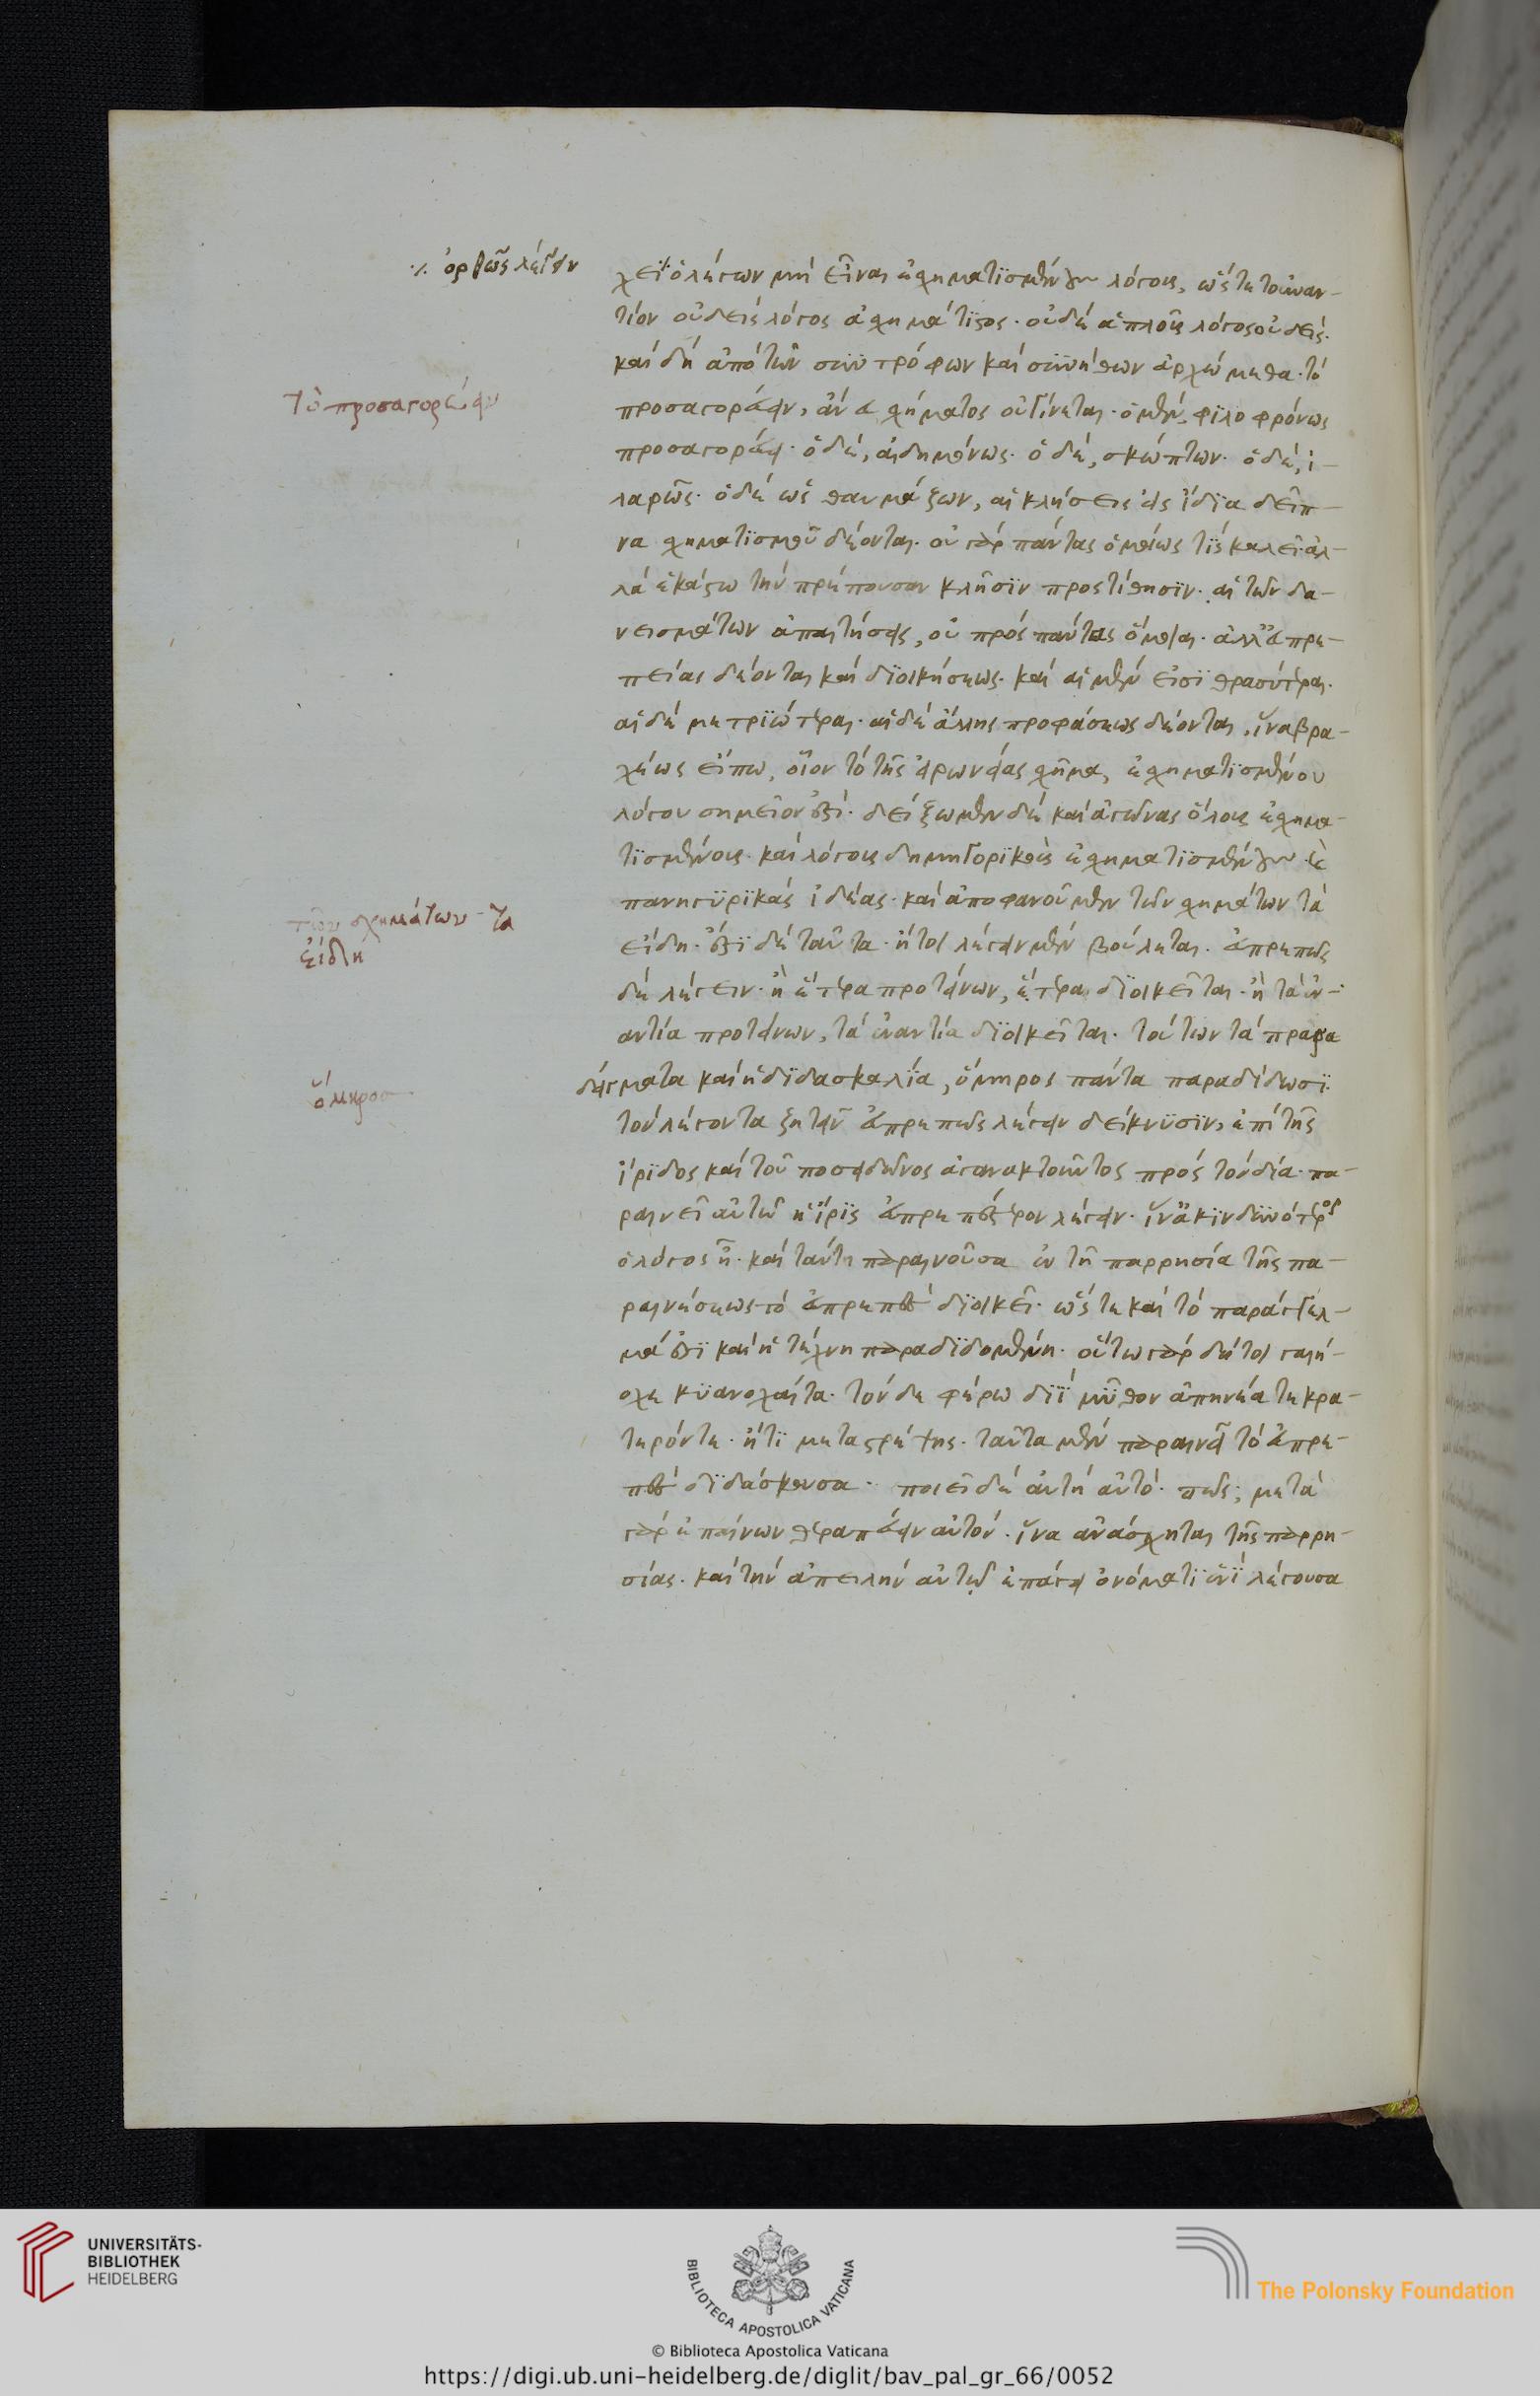 ⁒ ὀρθῶς λέγειν
χεῖ ὁ λέγων μὴ εἶναι ἐσχηματισμένους λόγους, ὥς τε τοὐναν-
τίον οὐδεὶς λόγος ἀσχημάτιστος· οὐδὲ ἁπλοῦς λόγος οὐδείς.
καὶ δὴ ἀπὸ τῶν συντρόφων καὶ συνήθων ἀρχώμεθα· τὸ
τὸ προσαγορεύειν
προσαγορεύειν, ἄνευ σχήματος οὐ γίνεται· ὁ μὲν, φιλοφρόνως
προσαγορεύει· ὁ δὲ, αἰδημόνως· ὁ δὲ, σκώπτων· ὁ δὲ, ἱ-
λαρῶς· ὁ δὲ ὡς θαυμάζων, αἱ κλήσεις εἰς ἴδια δεῖπ-
να σχηματισμοῦ δέονται· οὐ γὰρ πάντας ὁμοίως τίς καλεῖ· ἀλ-
λὰ ἑκάστω τὴν πρέπουσαν κλῆσιν προςτίθησιν· αἱ τῶν δα-
νεισμάτων ἀπαιτήσεις, οὐ πρὸς πάντας ὅμοιαι· ἀλλ' εὐπρε-
πείας δέονται καὶ διοικήσεως· καὶ αἱ μέν εἰσι θρασύτεραι·
αἱ δὲ μετριώτεραι· αἱ δὲ ἄλλης προφάσεως δέονται, ἵνα βρα-
χέως εἴπω, οἷον τὸ τῆς εἰρωνείας σχῆμα, ἐσχηματισμένου
λόγου σημεῖον ἐστί· δείξωμεν δὲ καὶ ἀγῶνας ὅλους ἐσχημα-
τισμένους· καὶ λόγους δημηγορικοὺς ἐσχηματισμένους· καὶ
πανηγυρικὰς ἰδέας· καὶ ἀποφανοῦμεν τῶν σχημάτων τὰ
τῶν σχημάτων τὰ
εἴδη
εἴδη· ἔστι δὲ ταῦτα· ἤτοι λέγειν μὲν βούλεται· εὐπρεπῶς
δὲ λέγειν· ἢ ἕτερα προτείνων, ἕτερα διοικεῖται· ἢ τὰ ἐν-
αντία προτείνων, τὰ ἐναντία διοικεῖται· τούτων τὰ παρα
δείγματα καὶ ἡ διδασκαλία, ὅμηρος πάντα παραδίδωσι·
ὅμηρος
τὸν λέγοντα ζητεῖν εὐπρεπῶς λέγειν δείκνυσιν, ἐπὶ τῆς
ἴριδος καὶ τοῦ ποσειδῶνος ἀγανακτοῦντος πρὸς τὸν δία· πα-
ραινεῖ αὐτῶ ἡ ἶρις εὐπρεπέστερον λέγειν· ἵν' ἀκινδυνότερος
ὁ λόγος ἦ· καὶ ταύτη παραινοῦσα ἐν τῆ παρρησία τῆς πα-
ραινέσεως τὸ εὐπρεπὲς διοικεῖ· ὥς τε καὶ τὸ παράγγελ-
μά ἐστι καὶ ἡ τέχνη παραδιδομένη· οὕτω γὰρ δή τοι γαιή-
οχε κυανοχαῖτα· τόνδε φέρω διῒ μῦθον ἀπηνέα τε κρα-
τερόν τε· ἤ τι μεταστρέψεις· ταῦτα μὲν παραινεῖ τὸ εὐπρε-
πὲς διδάσκουσα· ποιεῖ δὲ αὐτὴ αὐτό· πῶς; μετὰ
γὰρ ἐπαίνων θεραπεύειν αὐτόν· ἵνα ἀνάσχηται τῆς παρρη-
σίας· καὶ τὴν ἀπειλὴν αὐτῶ ἐπάγει ὀνόματι ἑνὶ λέγουσα
UNIVERSITÄTS-
BIBLIOTHEK
HEIDELBERG
BIBLIOTECA APOSTOLICA VATICANA
The Polonsky Foundation
© Biblioteca Apostolica Vaticana
https://digi.ub.uni-heidelberg.de/diglit/bav_pal_gr_66/0052